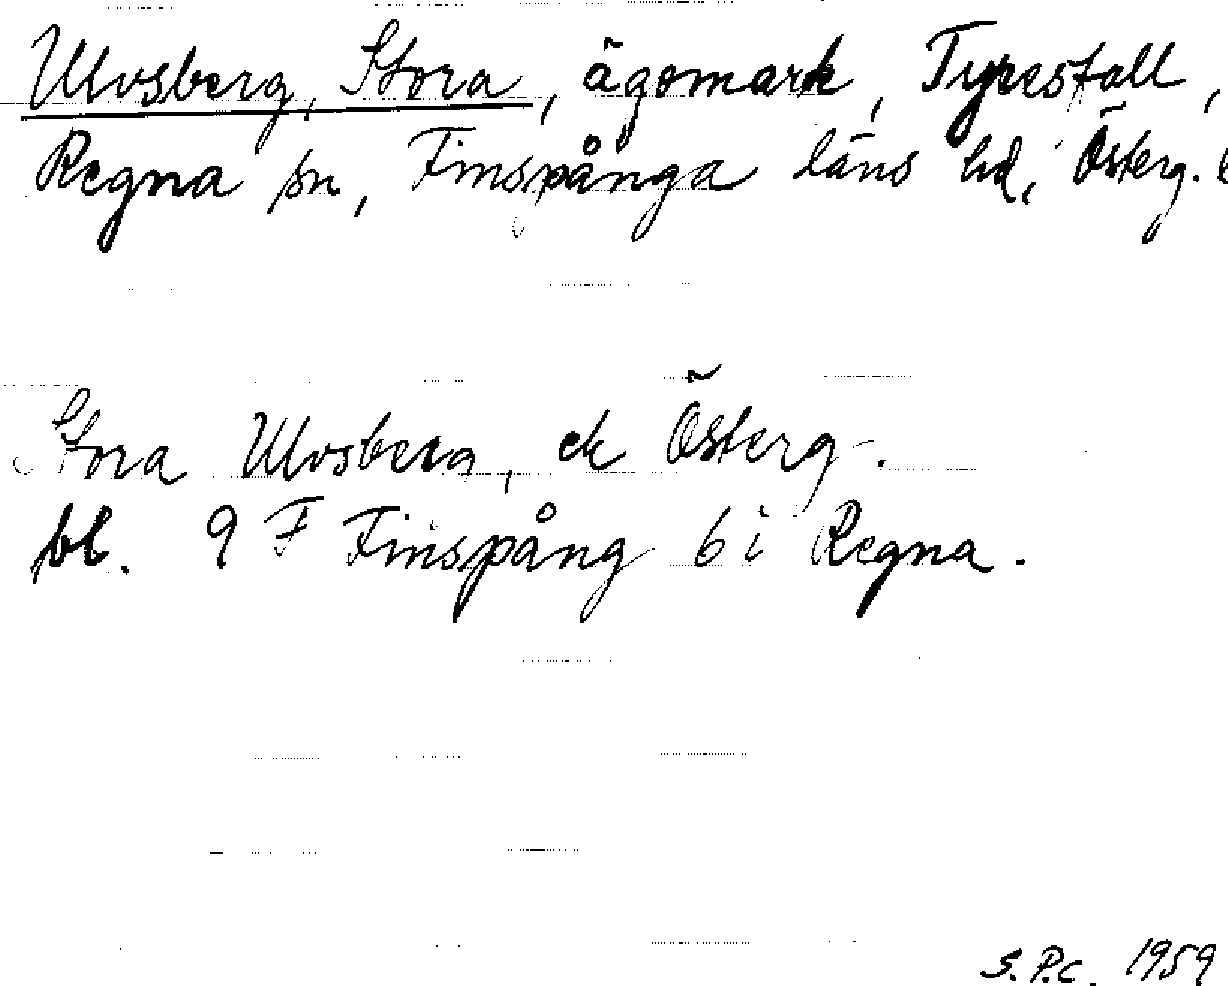 Ulvsberg, Stora, ägomark, Tyrestall,
Regna sn, Finspånga läns hd, Österg. l
Stora Ulvsberg, ek Österg.
bl. 9 F Finspång 6 i Regna.
S.P.C. 1959